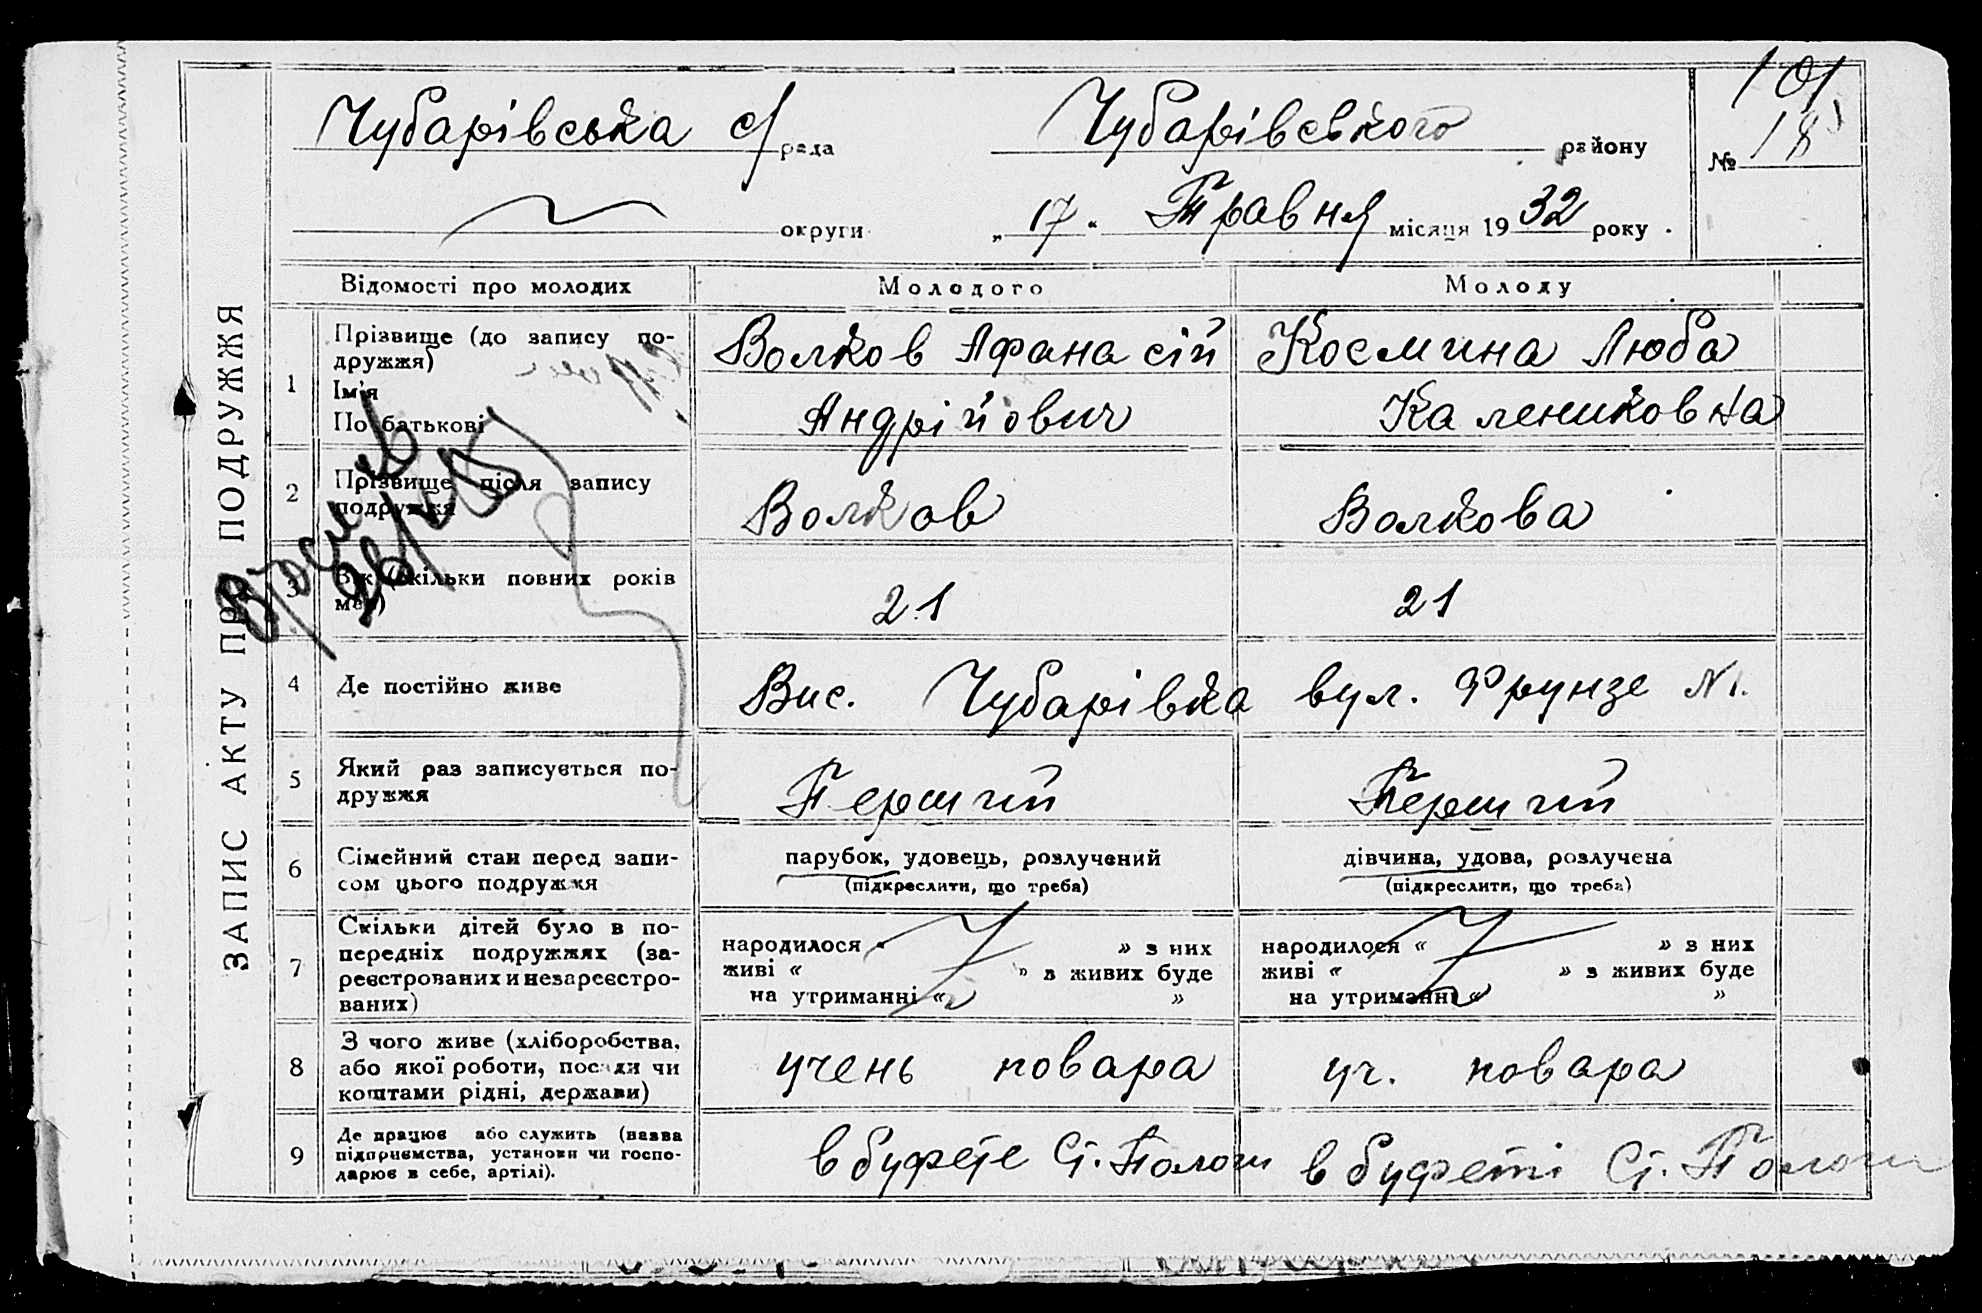 ЗАПИС АКТУ ПРО ПОДРУЖЖЯ
101
Чубарівська с/рада Чубарівського району № 18
округи „17“ Травня місяця 1932 року.
Відомості про молодих Молодого Молоду
1 Прізвище (до запису по-
дружжя)
Ім'я
По батькові
Волков Афанасій
Андрійович
Космина Люба
Калениковна
2 Прізвище після запису
подружжя
Волков
Волкова
3 Вік (скільки повних років
має)
21
21
4 Де постійно живе
Вис. Чубарівка вул. Фрунзе №1.
5 Який раз записується по-
дружжя
Перший
Перший
6 Сімейний стан перед запи-
сом цього подружжя
парубок, удовець, розлучений
(підкреслити, що треба)
дівчина, удова, розлучена
(підкреслити, що треба)
7 Скільки дітей було в по-
передніх подружжях (за-
реєстрованих и незареєстро-
ваних)
народилося « » з них
живі « » з живих буде
на утриманні « »
народилося « » з них
живі « » з живих буде
на утриманні « »
8 З чого живе (хліборобства,
або якої роботи, посади чи
коштами рідні, держави)
учень повара
уч. повара
9 Де працює або служить (назва
підприємства, установи чи госпо-
дарює в себе, артілі).
в буфете Ст. Пологи
в буфеті Ст. Пологи